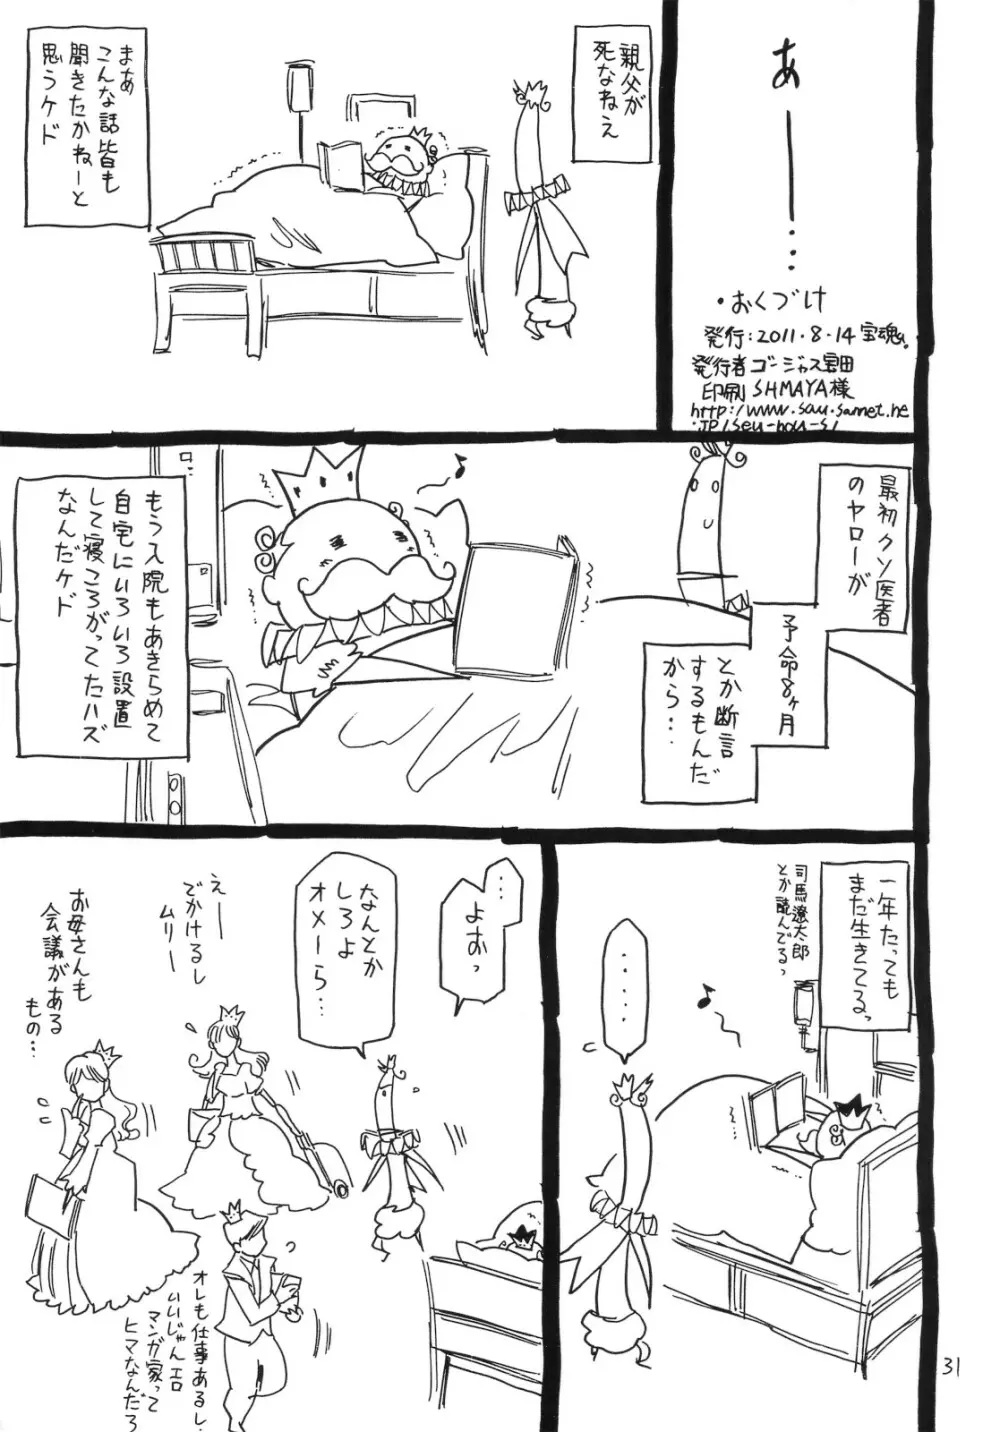 あーーー…
・おくづけ
発行：2011・8・14 宝魂。
発行者 ゴージャス宝田
印刷 SHMAYA様
http://www.sau.sannet.ne
.JP/seu-hou-s/
親父が
死なねえ
まあ
こんな話皆も
聞きたかねーと
思うケド
最初クソ医者
のヤローが
予命8ヶ月
とか断言
するもんだ
から…
もう入院もあきらめて
自宅にいろいろ設置
して寝ころがってたハズ
なんだケド
一年たっても
まだ生きてるっ
司馬遼太郎
とか読んでるっ
・・・・・・
…
よおっ
なんとか
しろよ
オメーら…
えーー
でかけるし
ムリー
お母さんも
会議がある
もの…
オレも仕事あるし、
いいじゃんエロ
マンガ家って
ヒマなんだろ
31